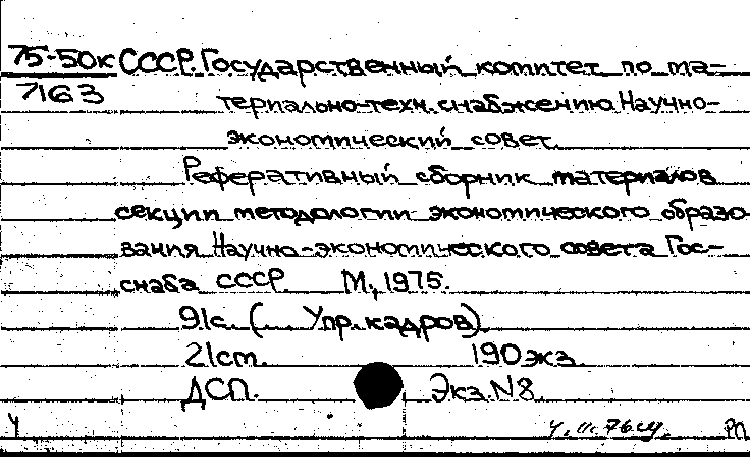 75-50к СССР. Государственный комитет по ма-
7163 териально-техн. снабжению. Научно-
экономический совет.
Реферативный сборник материалов
секции методологии экономического образо
вания Научно-экономического совета Гос-
снаба СССР. М., 1975.
91с. (... Упр. кадров).
21см. 190 экз.
ДСП. Экз. N8.
Ч РП